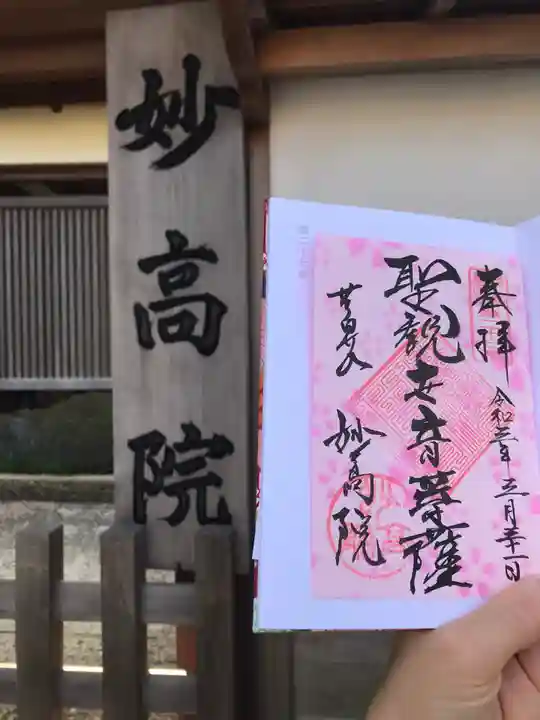 妙高院
奉拝
令和三年三月二十一日
聖観世音菩薩
妙高院